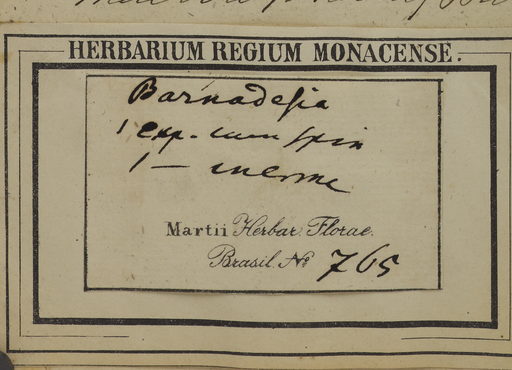 HERBARIUM REGIUM MONACENSE.
Barnadesia
1 exp. cum spin
1 — inerme
Martii Herbar. Florae
Brasil. No 765